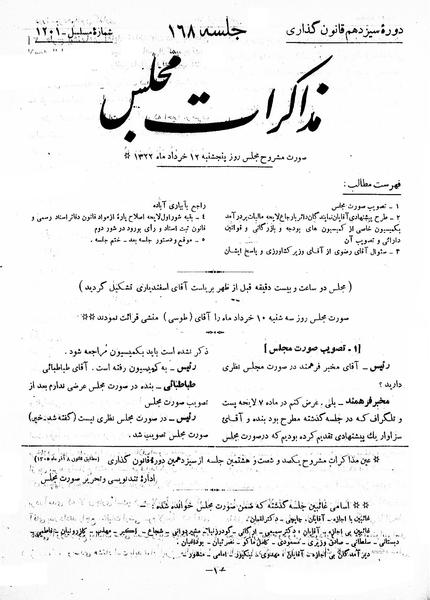 دورهٔ سیزدهم قانون گذاری
جلسه ۱۶۸
شمارهٔ مسلسل - ۱۲۰۱
مذاکرات مجلس
صورت مشروح مجلس روز پنجشنبه ۱۲ خرداد ماه ۱۳۲۲ *
فهرست مطالب:
۱ - تصویب صورت مجلس
۲ - طرح پیشنهادی آقایان نمایندگان دائر بارجاع لایحه مالیات بر درآمد
بکمیسیون خاصی از کمیسیون های بودجه و بازرگانی و قوانین
دارائی و تصویب آن
۳ - سئوال آقای رضوی از آقای وزیر کشاورزی و پاسخ ایشان
راجع بآبیاری آباده
۴ - بقیه شور اول لایحه اصلاح پارهٔ از مواد قانون دفتر اسناد رسمی و
قانون ثبت اسناد و رأی بورود در شور دوم
۵ - موقع و دستور جلسه بعد - ختم جلسه .
(مجلس دو ساعت و بیست دقیقه قبل از ظهر بریاست آقای اسفندیاری تشکیل گردید)
صورت مجلس روز سه شنبه ۱۰ خرداد ماه را آقای (طوسی) منشی قرائت نمودند **
[۱ - تصویب صورت مجلس]
رئیس - آقای مخبر فرهمند در صورت مجلس نظری
دارید ؟
مخبر فرهمند - بلی . عرض کنم در ماده ۷ لایحه پست
و تلگراف که در جلسه گذشته مطرح بود بنده و آقای
سزاوار یک پیشنهادی تقدیم کرده بودیم که در صورت مجلس
ذکر نشده است باید بکمیسیون مراجعه شود .
رئیس - به کمیسیون رفته است . آقای طباطبائی
طباطبائی - بنده در صورت مجلس عرضی ندارم بعد از
تصویب صورت مجلس
رئیس - در صورت مجلس نظری نیست (گفته شد - خیر)
صورت مجلس تصویب شد .
* عین مذاکرات مشروح یکصد و شصت و هشتمین جلسه از سیزدهمین دورهٔ قانون گذاری (مطابق قانون ۸ آذر ماه ۱۳۰۵)
ادارهٔ تندنویسی و تحریر صورت مجلس
** اسامی غائبین جلسه گذشته که ضمن صورت مجلس خوانده شده :-
غائبین با اجازه - آقایان :
دبستانی - سلطانی - صادق وزیری - مسعودی -
دیر آمدگان بی اجازه - آقایان : مهدوی -
-۱-